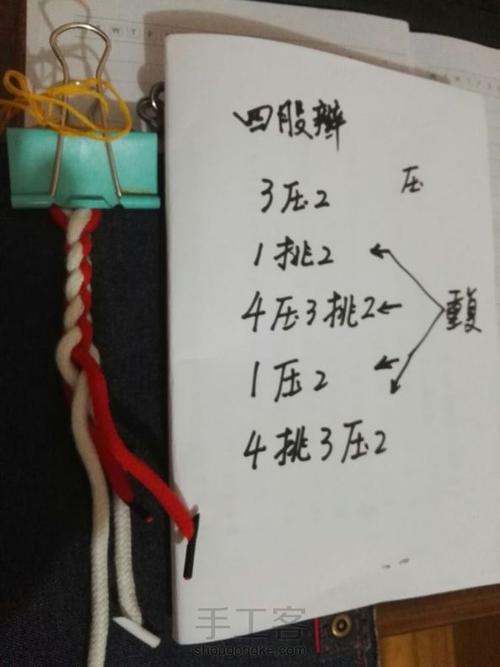 四股辫
3压2
压
1挑2
4压3挑2
重复
1压2
4挑3压2
手工客
shougongke.com